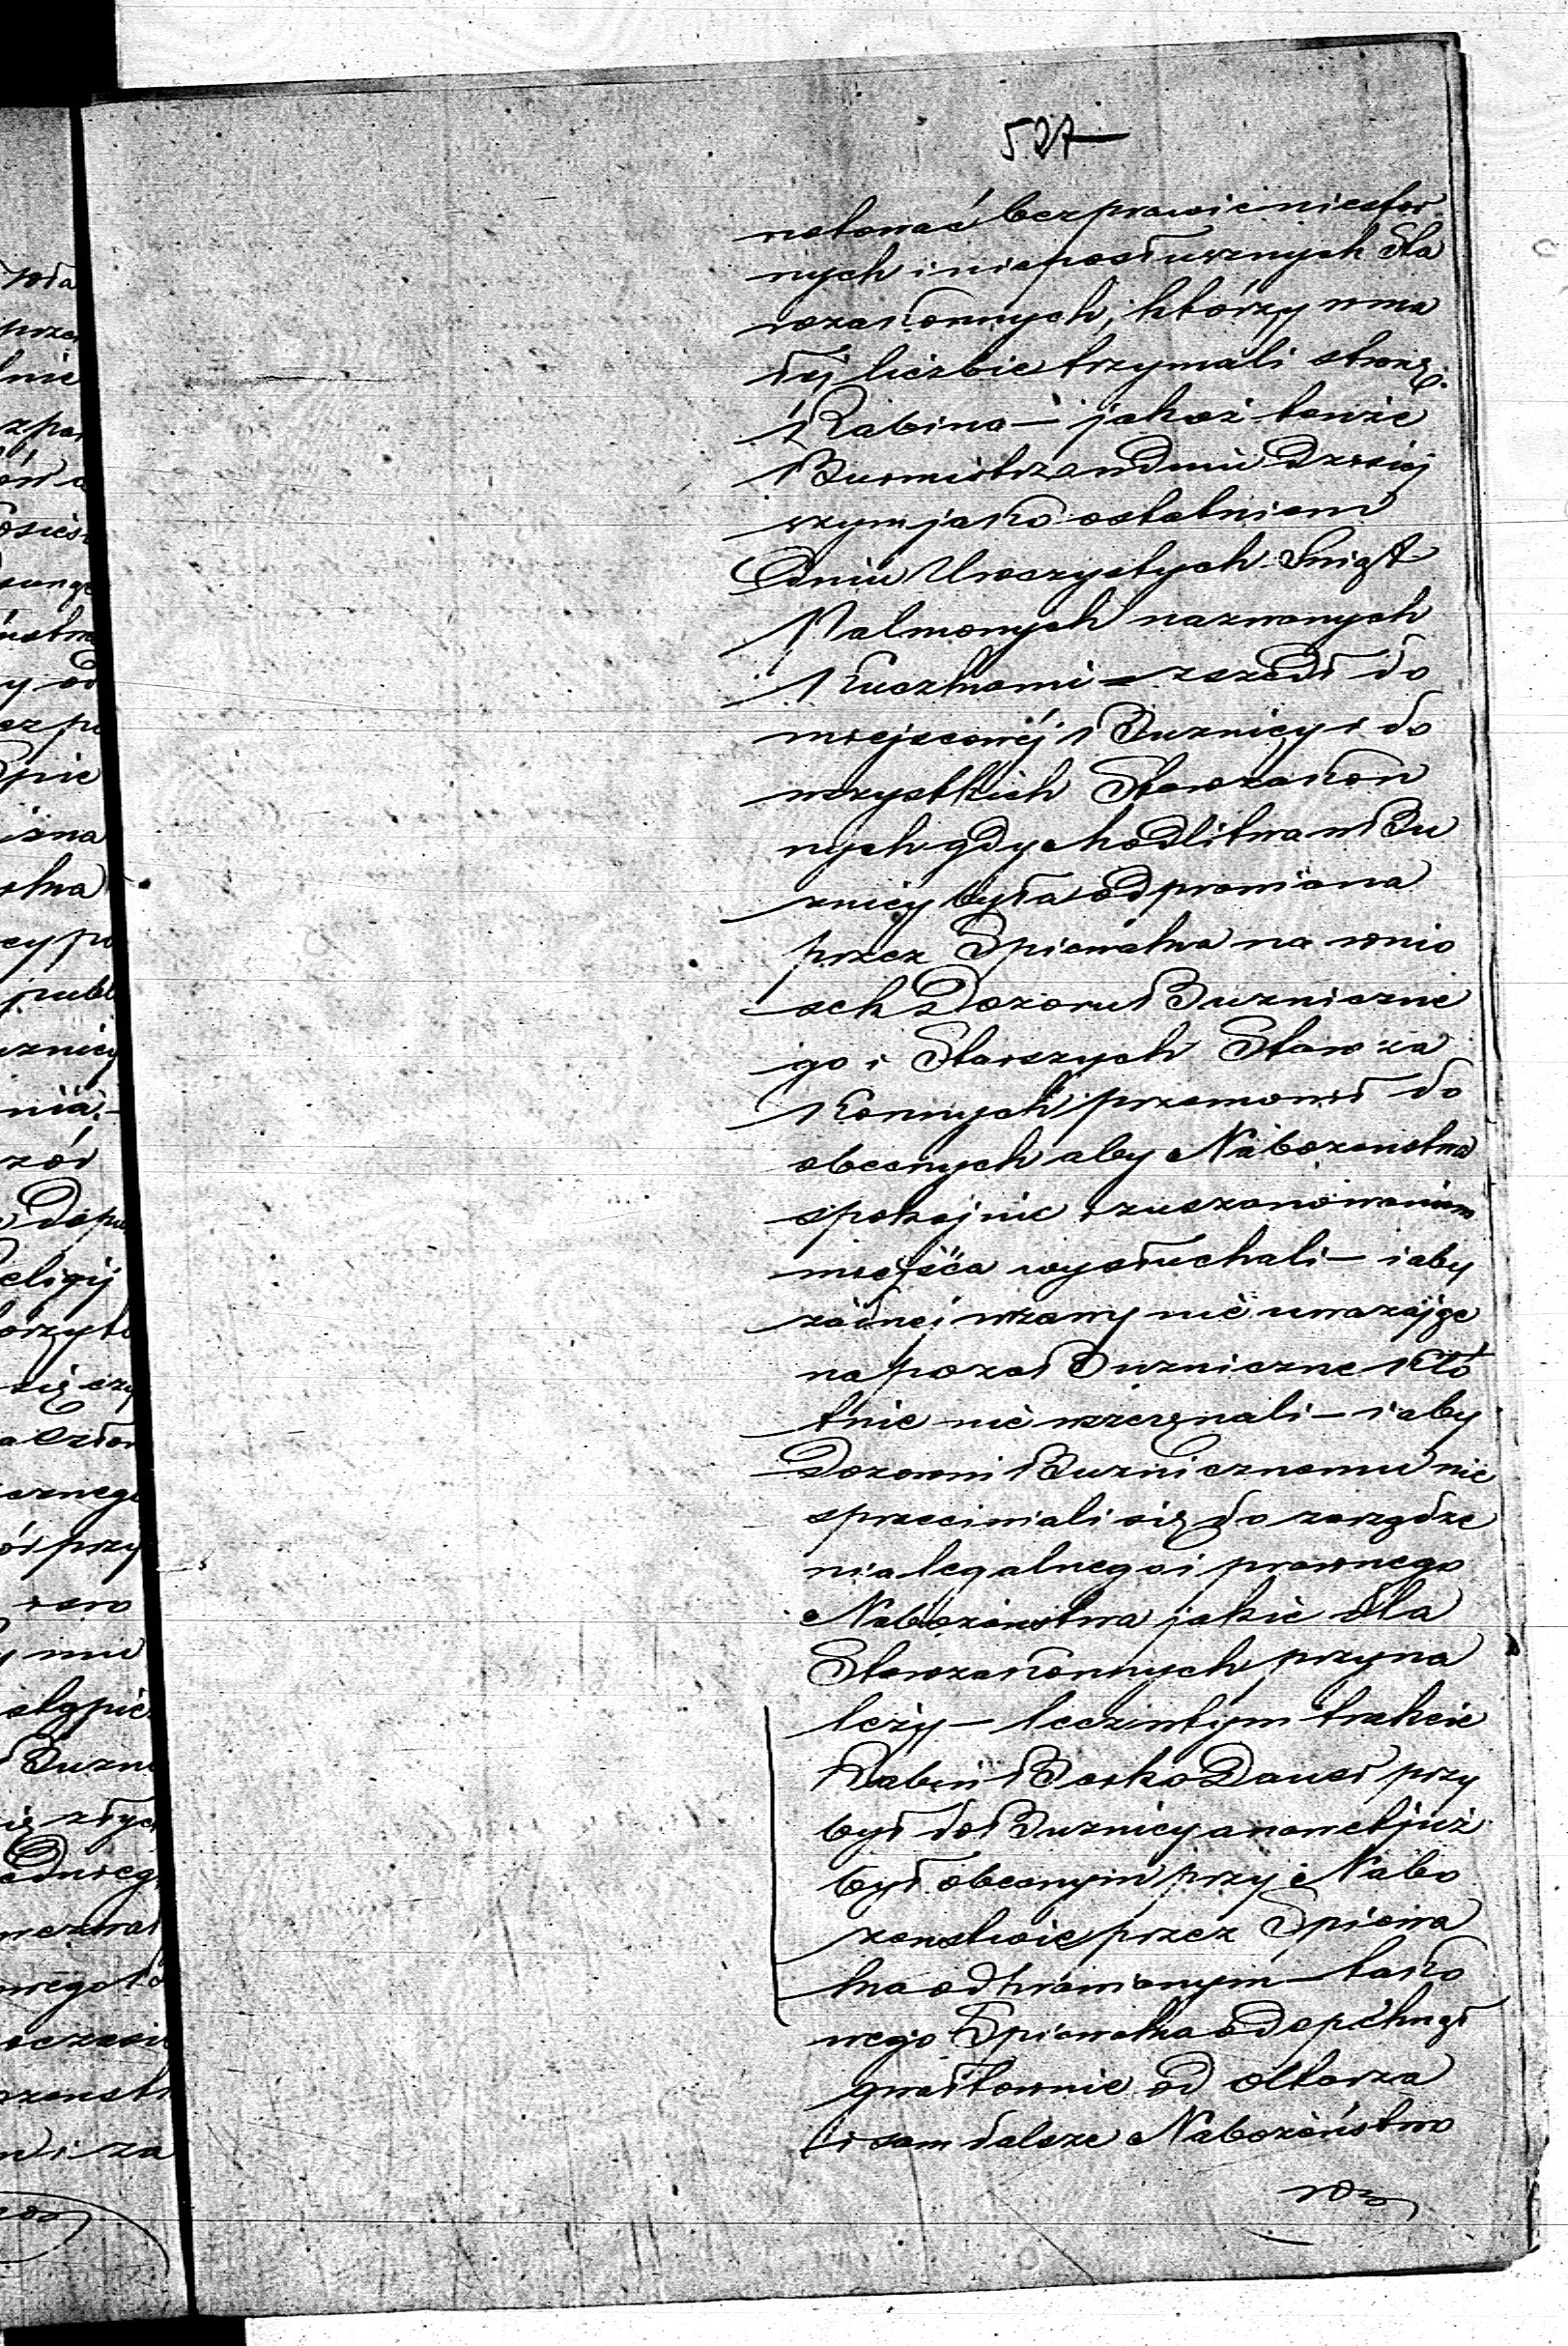 527
notować bezprawie niesfor
nych i nieposłusznych Sta
rozakonnych, którzy w ma
łej liczbie trzymali stronę
Rabina — jakoż tenże
Burmistrz w dniu dzisiej
szym jako ostatniem
Dniu Uroczystych Swiąt
Palmowych nazwanych
Kuczkami — zszedł do
miejscowéj Buznicy i do
wszystkich Starozakon
nych gdy modlitwa w Bu
znicy była odprawiana
przez Spiewaka na wnio
sek Dozoru Buzniczne
go i Starszych Staroza
konnych przemowił do
obecnych aby Nabozenstwa
spokojnie z uszanowaniem
miejsca wysłuchali — i aby
żadnej wrzawy nie uważając
na pozór Buzniczne kłó
tnie nie wszczynali — i aby
Dozorowi Buznicznemu nie
sprzeciwiali się do zarządze
nia legalnego i prawnego
Nabożeństwa jakie dla
Starozakonnych przyna
leży — lecz w tym trakcie
Rabin Berko Dauer przy
był do Buznicy a nawet już
był obecnym przy Nabo
zenstwie przez Spiewa
ka odprawianym — tako
wego Spiewaka odepchnął
gwałtownie od ołtarza
i sam dalsze Nabożeństwo